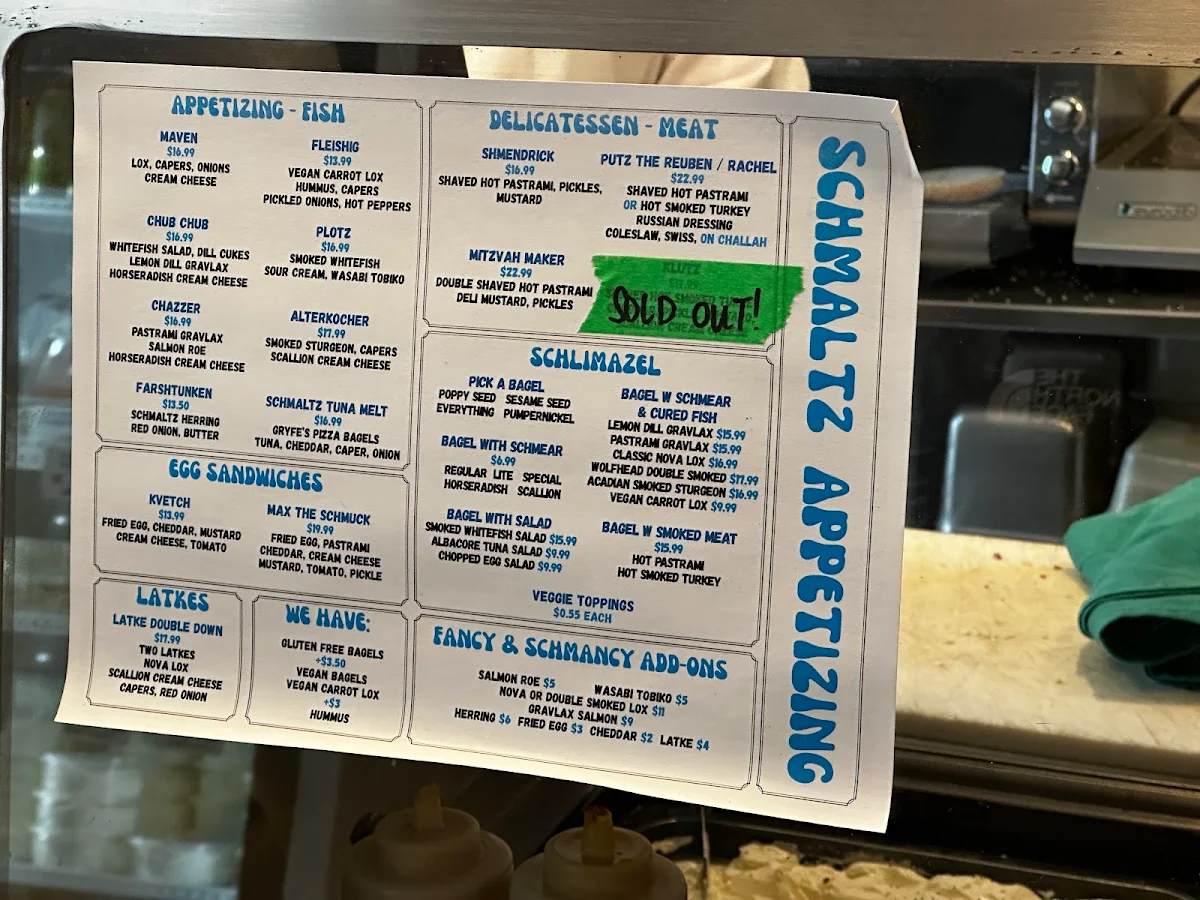 APPETIZING - FISH
MAVEN
$16.99
LOX, CAPERS, ONIONS
CREAM CHEESE
FLEISHIG
$13.99
VEGAN CARROT LOX
HUMMUS, CAPERS
PICKLED ONIONS, HOT PEPPERS
CHUB CHUB
$16.99
WHITEFISH SALAD, DILL CUKES
LEMON DILL GRAVLAX
HORSERADISH CREAM CHEESE
PLOTZ
$16.99
SMOKED WHITEFISH
SOUR CREAM, WASABI TOBIKO
CHAZZER
$16.99
PASTRAMI GRAVLAX
SALMON ROE
HORSERADISH CREAM CHEESE
ALTERKOCHER
$17.99
SMOKED STURGEON, CAPERS
SCALLION CREAM CHEESE
FARSHTUNKEN
$13.50
SCHMALTZ HERRING
RED ONION, BUTTER
SCHMALTZ TUNA MELT
$16.99
GRYFE'S PIZZA BAGELS
TUNA, CHEDDAR, CAPER, ONION
EGG SANDWICHES
KVETCH
$13.99
FRIED EGG, CHEDDAR, MUSTARD
CREAM CHEESE, TOMATO
MAX THE SCHMUCK
$19.99
FRIED EGG, PASTRAMI
CHEDDAR, CREAM CHEESE
MUSTARD, TOMATO, PICKLE
LATKES
LATKE DOUBLE DOWN
$17.99
TWO LATKES
NOVA LOX
SCALLION CREAM CHEESE
CAPERS, RED ONION
WE HAVE:
GLUTEN FREE BAGELS
+$3.50
VEGAN BAGELS
VEGAN CARROT LOX
+$3
HUMMUS
DELICATESSEN - MEAT
SHMENDRICK
$16.99
SHAVED HOT PASTRAMI, PICKLES,
MUSTARD
PUTZ THE REUBEN / RACHEL
$22.99
SHAVED HOT PASTRAMI
OR HOT SMOKED TURKEY
RUSSIAN DRESSING
COLESLAW, SWISS, ON CHALLAH
MITZVAH MAKER
$22.99
DOUBLE SHAVED HOT PASTRAMI
DELI MUSTARD, PICKLES
KLUTZ
SOLD OUT!
SCHLIMAZEL
PICK A BAGEL
POPPY SEED SESAME SEED
EVERYTHING PUMPERNICKEL
BAGEL WITH SCHMEAR
$6.99
REGULAR LITE SPECIAL
HORSERADISH SCALLION
BAGEL WITH SALAD
SMOKED WHITEFISH SALAD $15.99
ALBACORE TUNA SALAD $9.99
CHOPPED EGG SALAD $9.99
BAGEL W SCHMEAR
& CURED FISH
LEMON DILL GRAVLAX $15.99
PASTRAMI GRAVLAX $15.99
CLASSIC NOVA LOX $16.99
WOLFHEAD DOUBLE SMOKED $17.99
ACADIAN SMOKED STURGEON $16.99
VEGAN CARROT LOX $9.99
BAGEL W SMOKED MEAT
$15.99
HOT PASTRAMI
HOT SMOKED TURKEY
VEGGIE TOPPINGS
$0.55 EACH
FANCY & SCHMANCY ADD-ONS
SALMON ROE $5 WASABI TOBIKO $5
NOVA OR DOUBLE SMOKED LOX $11
GRAVLAX SALMON $9
HERRING $6 FRIED EGG $3 CHEDDAR $2 LATKE $4
SCHMALTZ APPETIZING
THE
NORTH